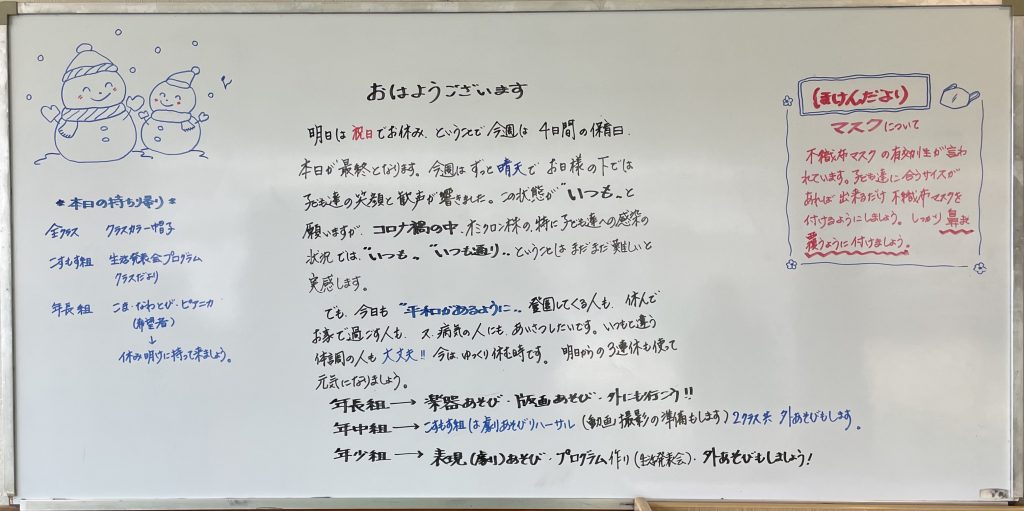 おはようございます
明日は祝日でお休み、ということで今週は4日間の保育日、
本日が最終となります。今週はずっと晴天でお日様の下では
子ども達の笑顔と歓声が響きました。この状態が"いつも"と
願いますが、コロナ禍の中、オミクロン株の、特に子ども達への感染の
状況では、"いつも"、"いつも通り"、ということはまだまだ難しいと
実感します。
でも、今日も"平和があるように"、登園してくる人も、休んで
お家で過ごす人も、又、病気の人にも、あいさつしたいです。いつもと違う
体調の人も大丈夫!!今は、ゆっくり休む時です。明日からの3連休も使って
元気になりましょう。
年長組→楽器あそび・版画あそび・外にも行こう!!
年中組→こすもす組は劇あそびリハーサル(動画撮影の準備もします)2クラス共 外あそびもします。
年少組→表現(劇)あそび・プログラム作り(生活発表会)・外あそびもしましょう!
*本日の持ち帰り*
全クラス クラスカラー帽子
こすもす組 生活発表会プログラム
クラスだより
年長組 こま・なわとび・ピアニカ
(希望者)
↓
休み明けに持って来ましょう。
ほけんだより
マスクについて
不織布マスクの有効性が言わ
れています。子ども達に合うサイズが
あれば出来るだけ不織布マスクを
付けるようにしましょう。しっかり鼻を
覆うように付けましょう。